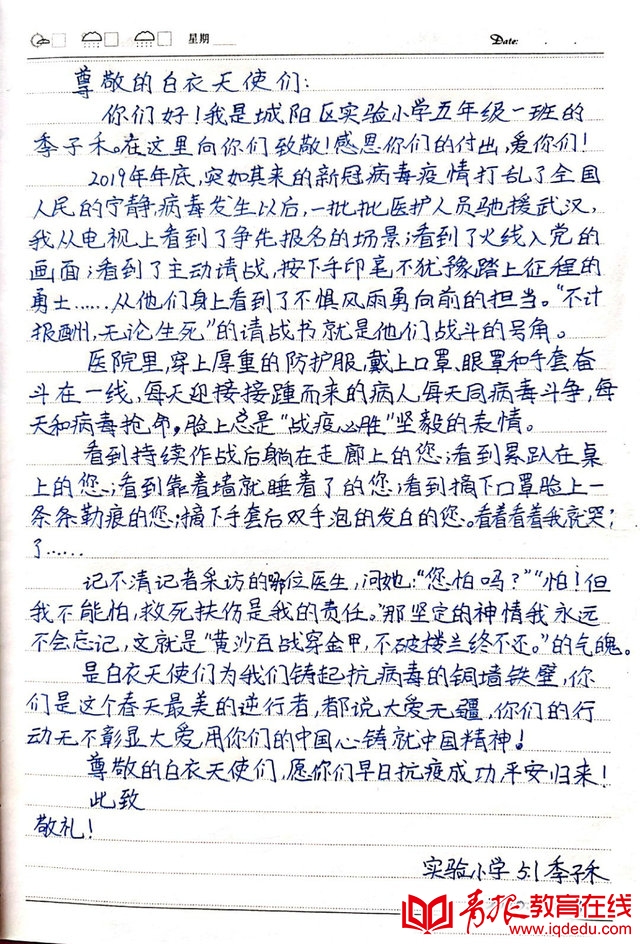 星期 Date:
尊敬的白衣天使们:
你们好!我是城阳区实验小学五年级一班的
季子禾。在这里向你们致敬!感恩你们的付出,爱你们!
2019年年底,突如其来的新冠病毒疫情打乱了全国
人民的宁静,病毒发生以后,一批批医护人员驰援武汉,
我从电视上看到了争先报名的场景;看到了火线入党的
画面;看到了主动请战,按下手印毫不犹豫踏上征程的
勇士……从他们身上看到了不惧风雨勇向前的担当。“不计
报酬,无论生死”的请战书就是他们战斗的号角。
医院里,穿上厚重的防护服,戴上口罩、眼罩和手套奋
斗在一线,每天迎接接踵而来的病人,每天同病毒斗争,每
天和病毒抢命,脸上总是“战疫必胜”坚毅的表情。
看到持续作战后躺在走廊上的您;看到累趴在桌
上的您;看到靠着墙就睡着了的您;看到摘下口罩脸上一
条条勒痕的您;摘下手套后双手泡的发白的您。看着看着我就哭
了……
记不清记者采访的哪位医生,问她:“您怕吗?”“怕!但
我不能怕,救死扶伤是我的责任。”那坚定的神情我永远
不会忘记,这就是“黄沙百战穿金甲,不破楼兰终不还。”的气魄。
是白衣天使们为我们铸起抗病毒的铜墙铁壁,你
们是这个春天最美的逆行者,都说大爱无疆,你们的行
动无不彰显大爱,用你们的中国心铸就中国精神!
尊敬的白衣天使们,愿你们早日抗疫成功,平安归来!
此致
敬礼!
实验小学 5.1 季子禾
青报教育在线
www.iqdedu.com